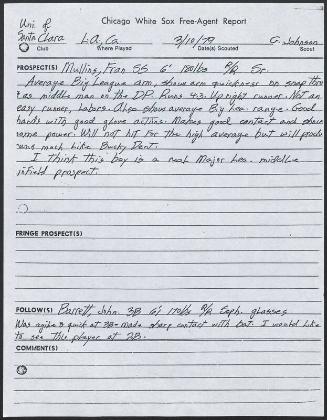 Chicago White Sox Free-Agent Report
Uni of
Santa Clara L.A, Ca. 3/10/79 G. Johnson
Club Where Played Date(s) Scouted Scout
PROSPECT(S) Mullins, Fran SS 6' 180lbs R/R Sr.
Average Big League arm, shows arm quickness on snap thru
as middle man on the DP. Runs 4.3. Upright runner. Not an
easy runner, Labors. Also shows average Big Lea. range. Good
hands with good glove actions. Makes good contact and shows
some power. Will not hit for the high average but will produce
runs much like Bucky Dent.
I think this boy is a real Major Lea. middle
infield prospect.
FRINGE PROSPECT(S)
FOLLOW(S) Barrett, John. 3B 6' 170lbs R/R Soph. glasses
Was agile & quick at 3B - made sharp contact with bat. I would like
to see this player at 2B.
COMMENT(S)